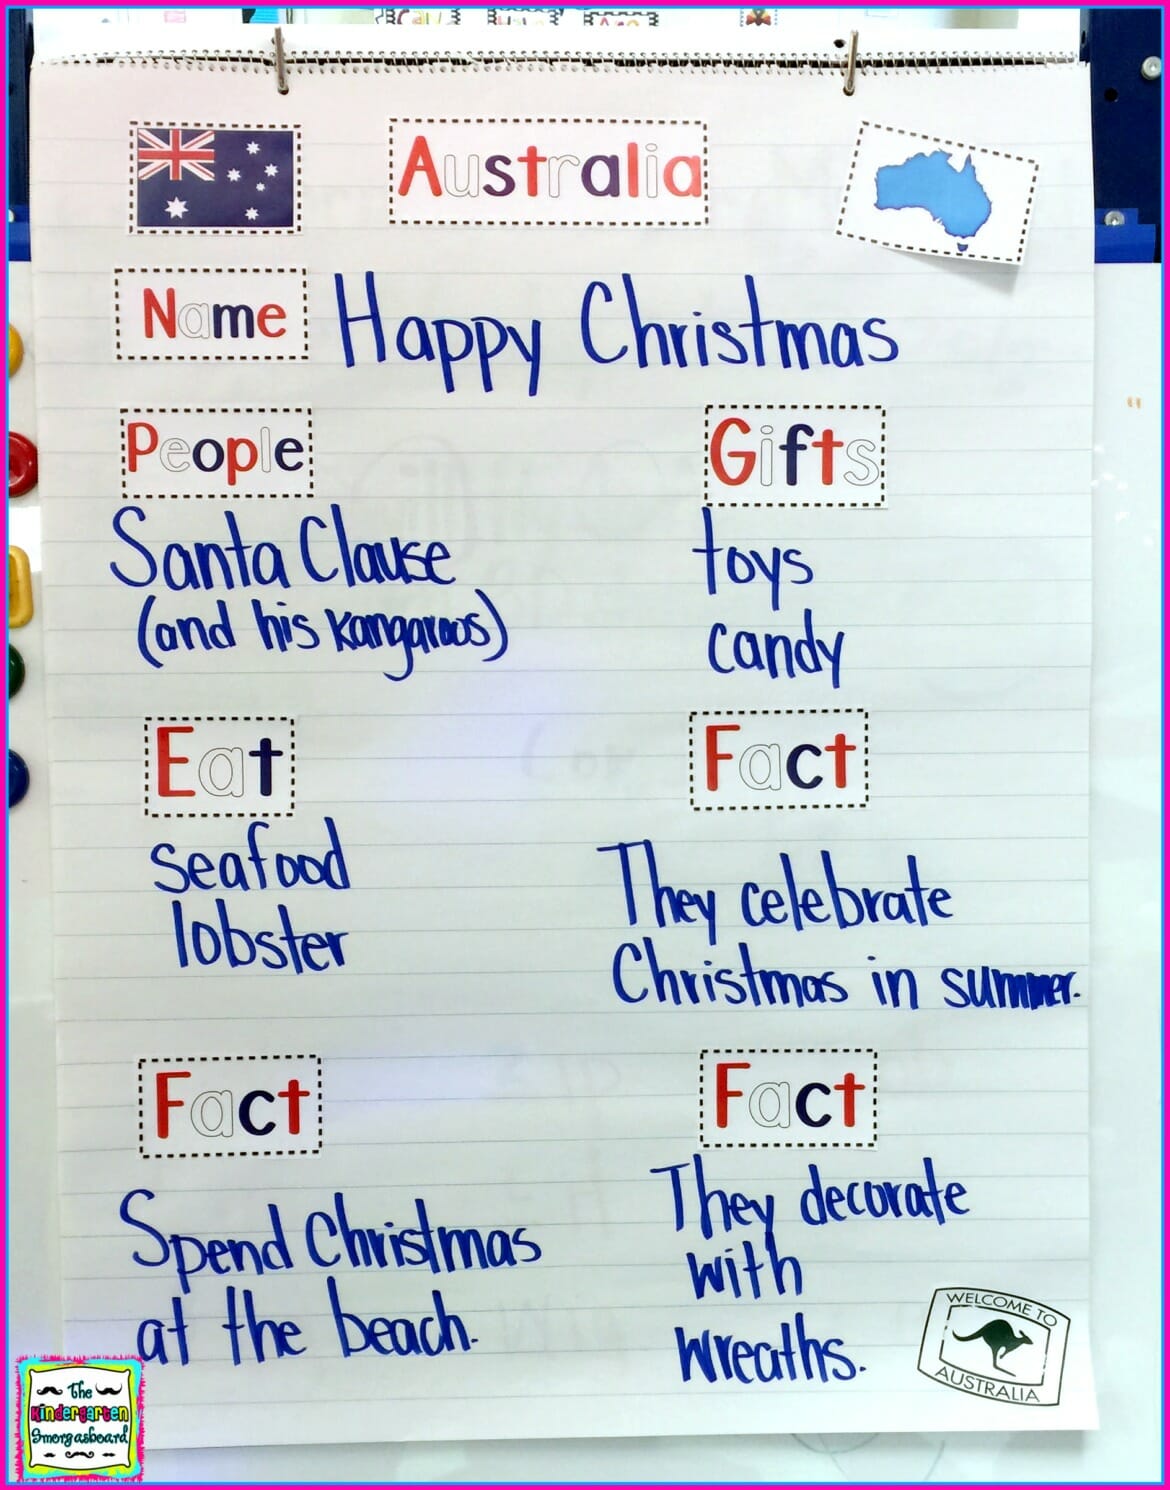 Australia
Name Happy Christmas
People
Santa Clause
(and his kangaroos)
Gifts
toys
candy
Eat
seafood
lobster
Fact
They celebrate
Christmas in summer.
Fact
Spend Christmas
at the beach.
Fact
They decorate
with
wreaths.
WELCOME TO
AUSTRALIA
The
Kindergarten
Smorgasboard